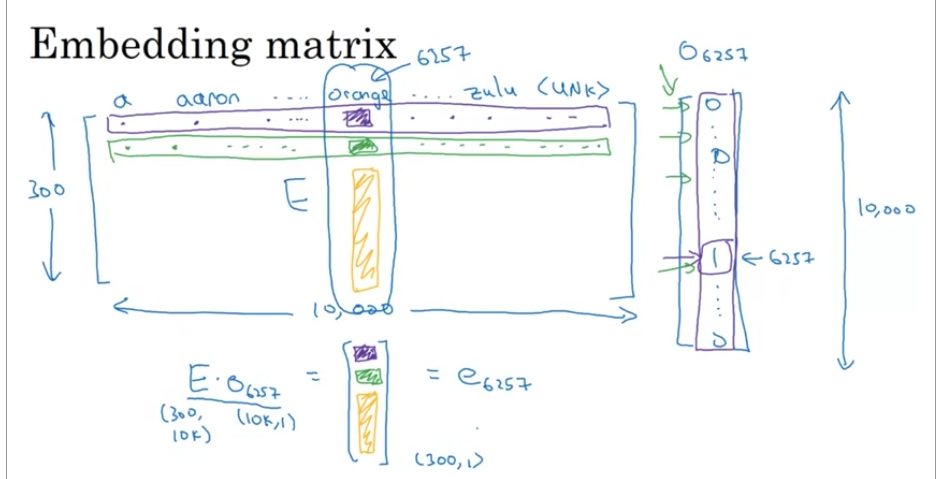 Embedding matrix
6257
O6257
a aaron ..... orange ..... zulu <UNK>
0
0
300
E
10,000
1 ← 6257
10,000
0
E · O6257 = [ ] = e6257
(300, (10K,1)
10K)
(300,1)